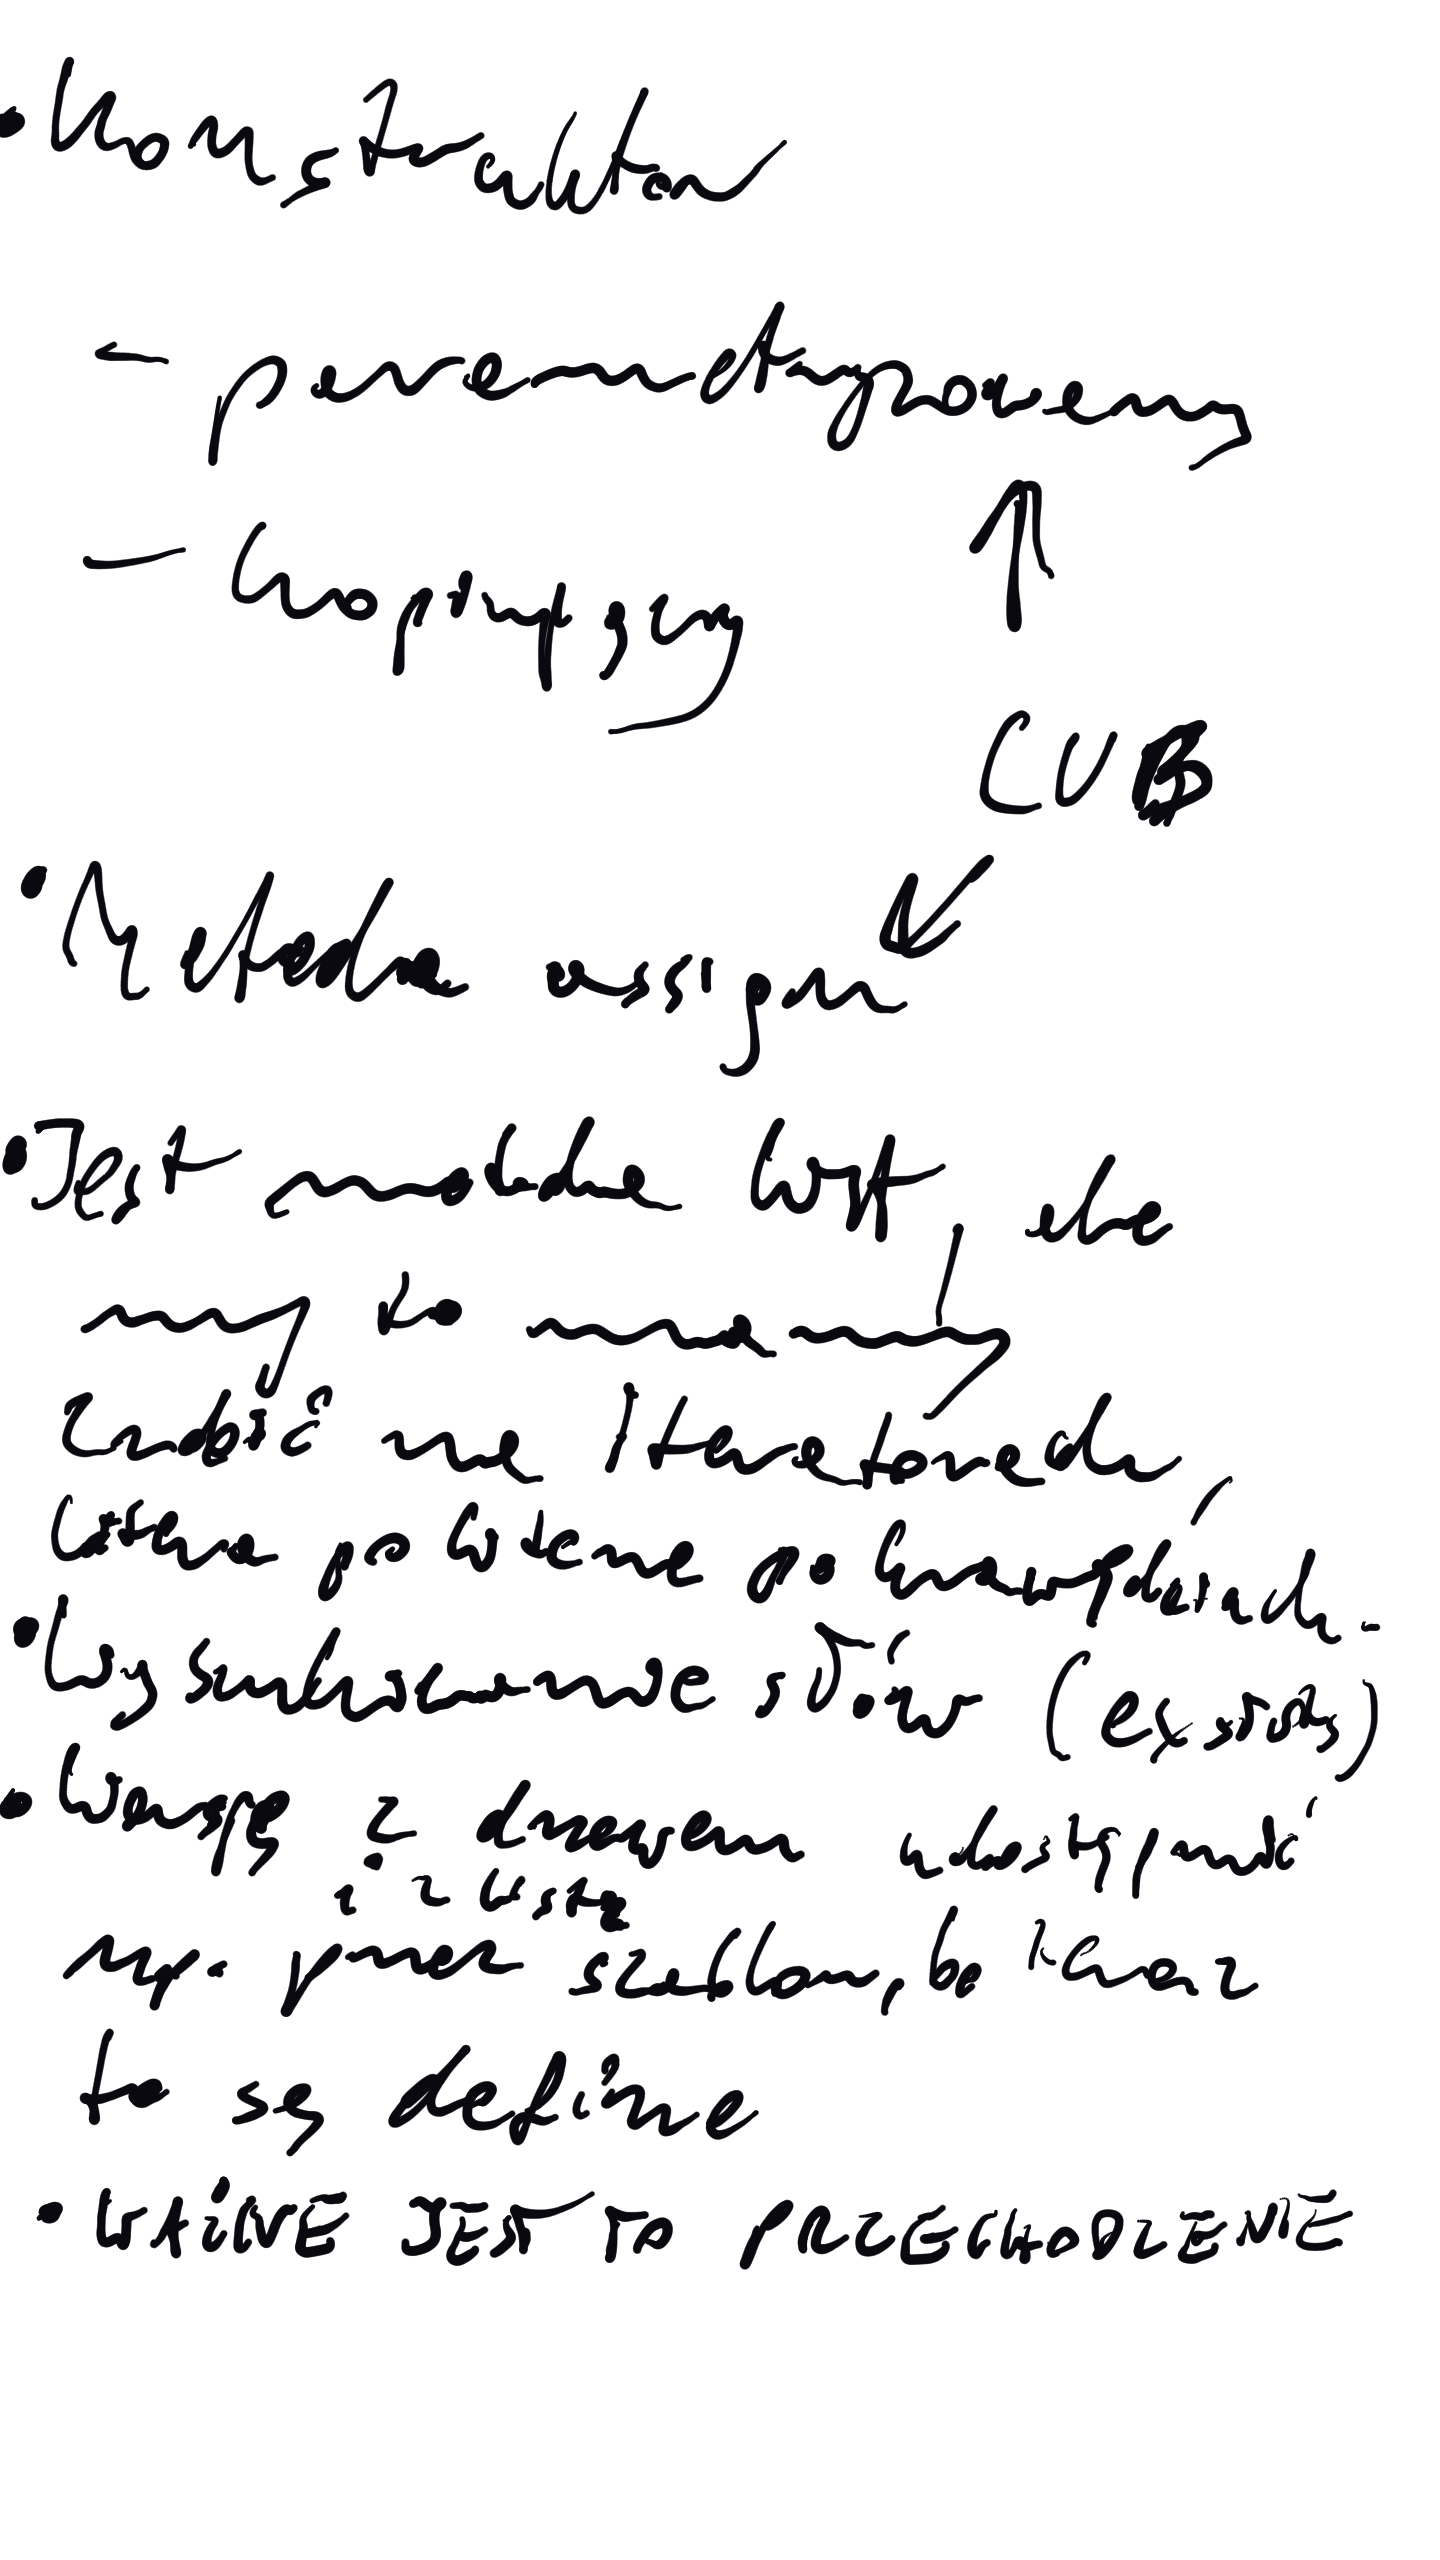 • Konstruktor
- parametryzowany
- kopiujący
CUB
• Metoda assign
• Jest metoda list, ale
my to mamy
zrobić na Iteratorach,
która po literce po krawędziach.
• Wyszukiwanie słów (exists)
• Wersję z drzewem udostępnić
i z listą
np. przez szablon, bo teraz
to są define
• WAŻNE JEST TO PRZECHODZENIE